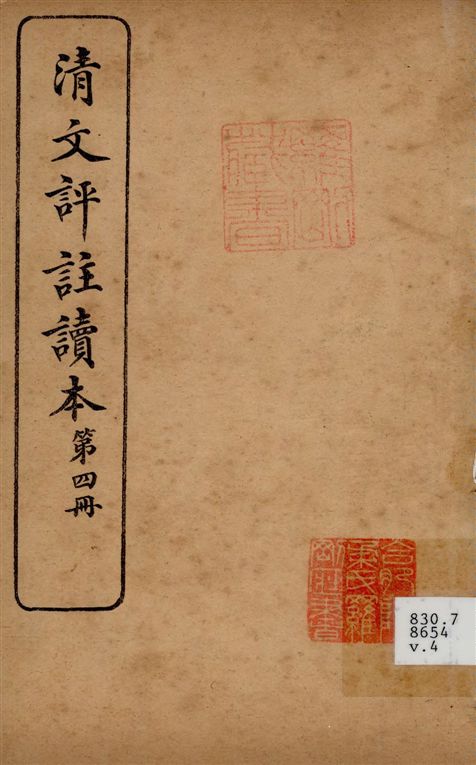 清文評註讀本第四冊
藏書
830.7
8654
v.4